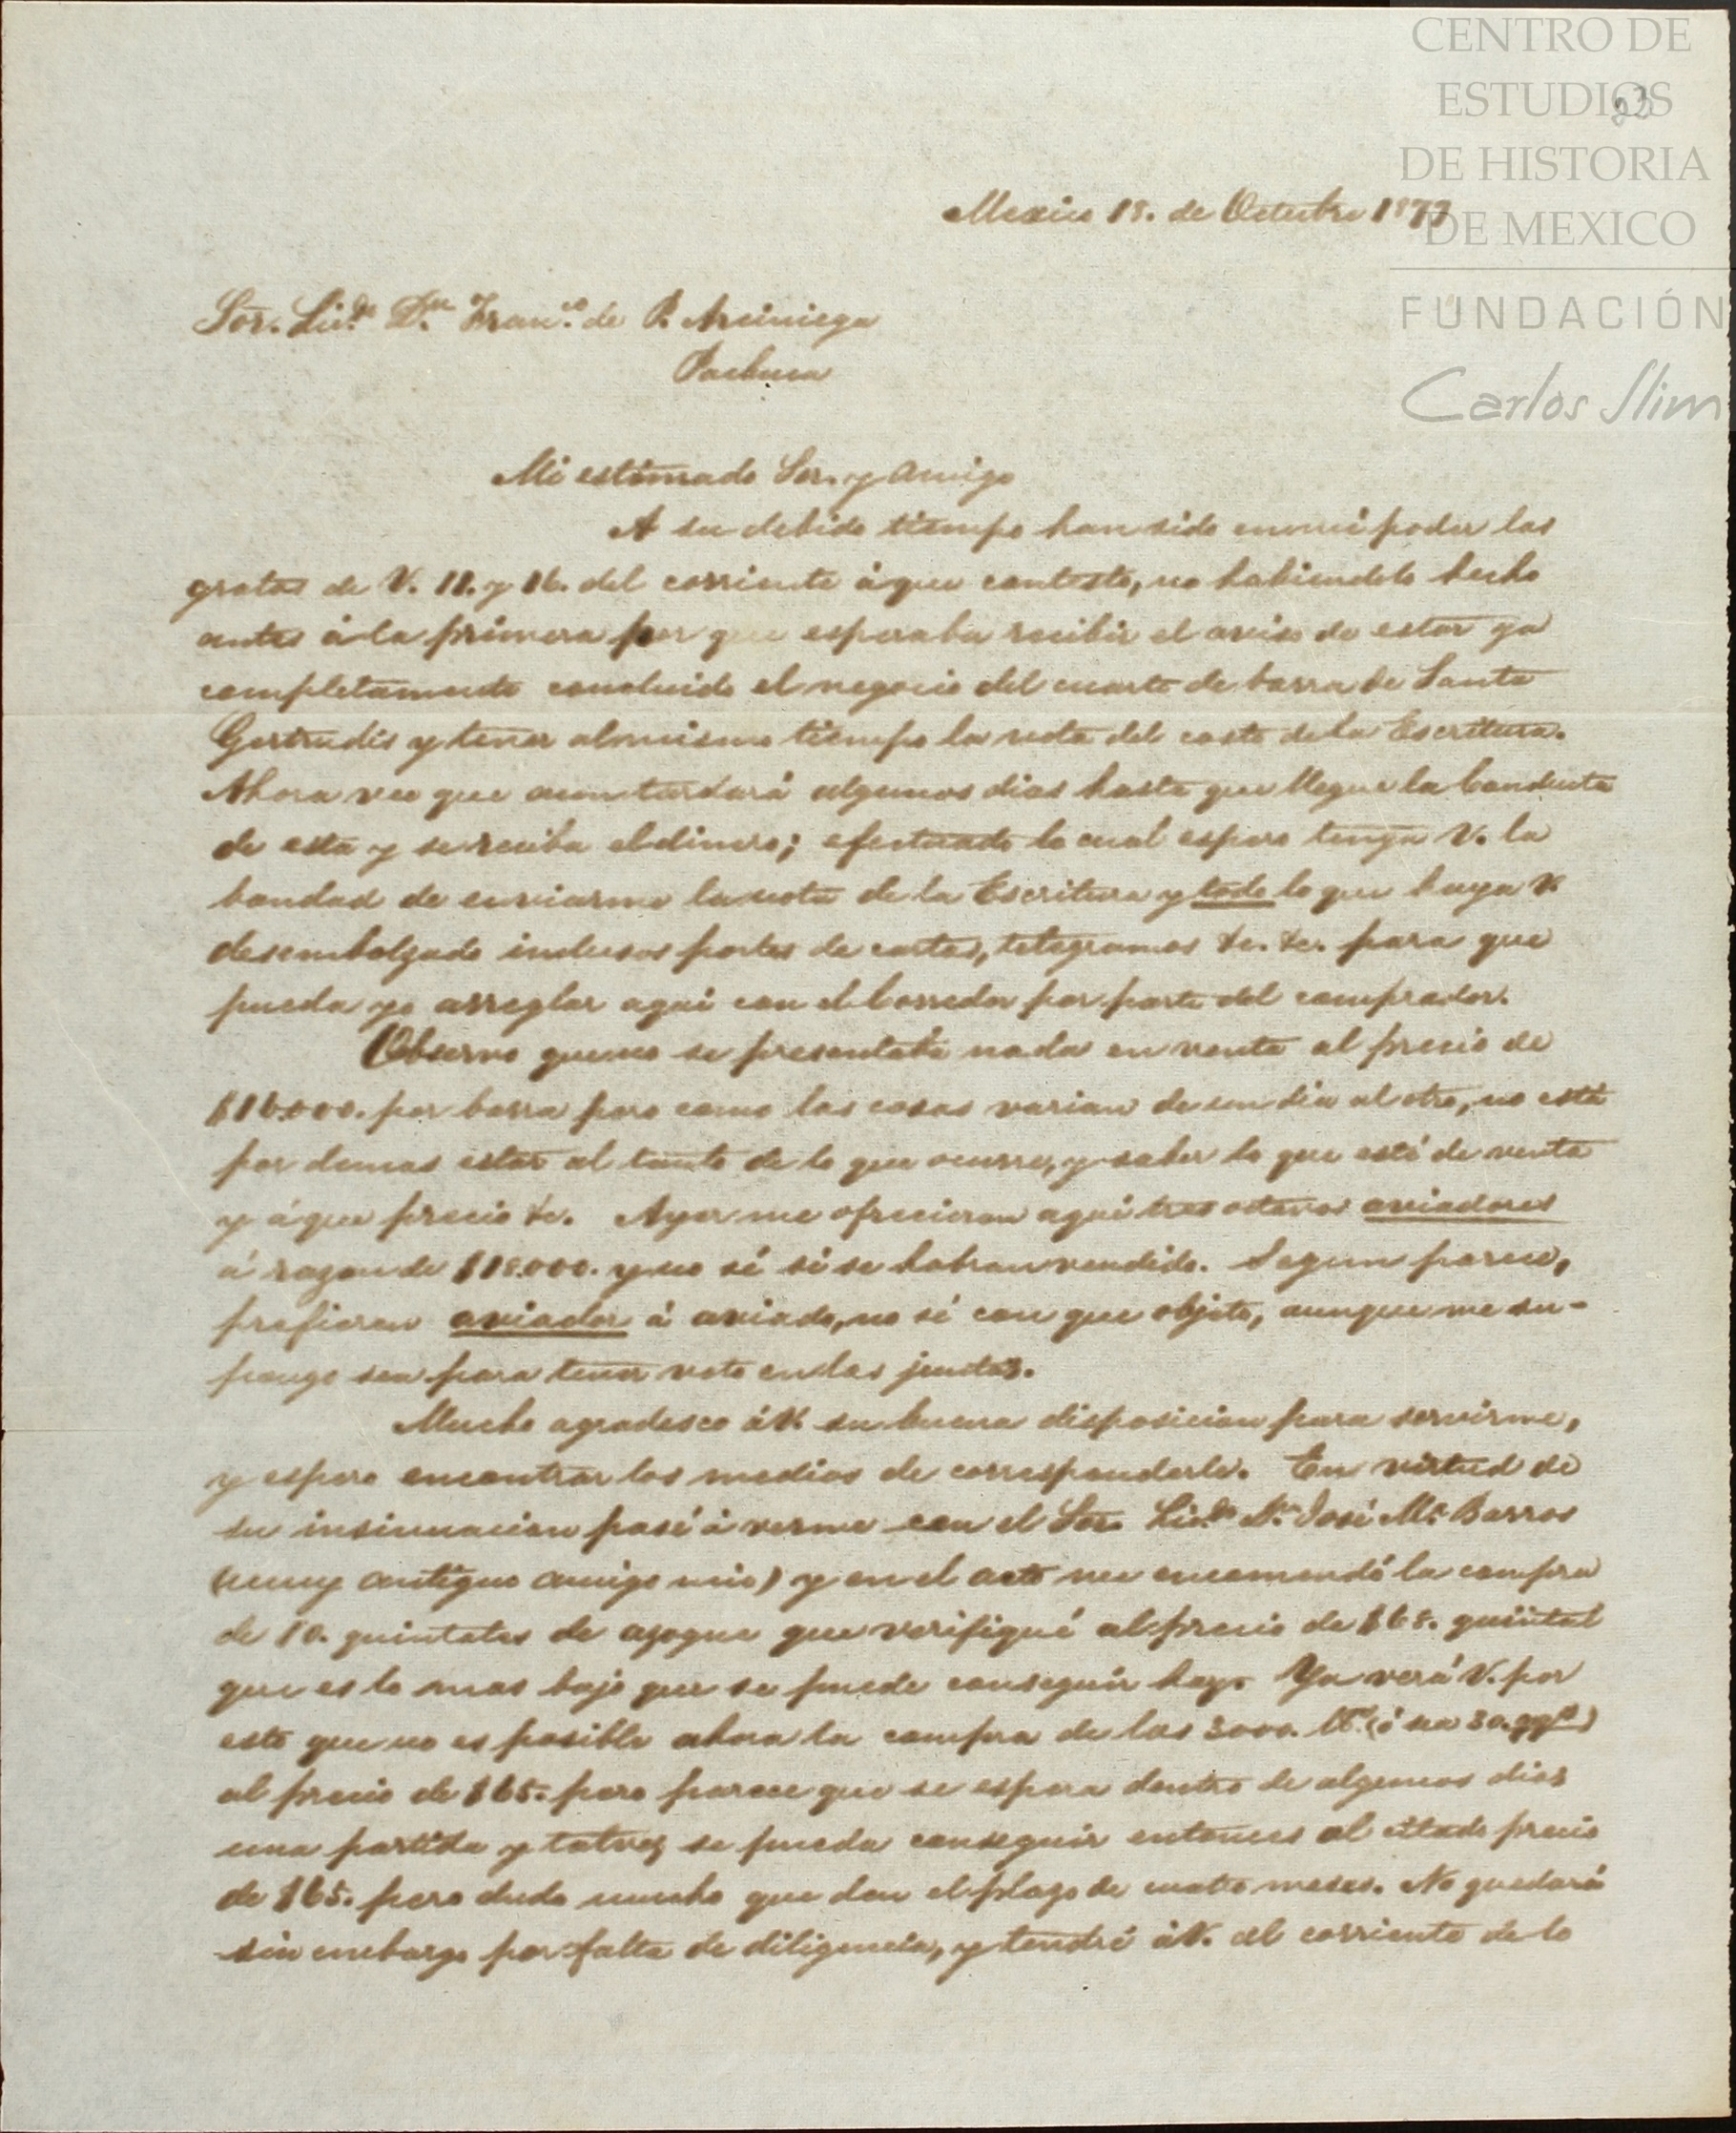 CENTRO DE
ESTUDIOS
DE HISTORIA
DE MEXICO
FUNDACIÓN
Carlos Slim
23
Mexico 18. de Octubre 1877
Sor. Licdo Dn Franco de P. Arciniega
Pachuca
Mi estimado Sor. y amigo
A su debido tiempo han sido en mi poder las
gratas de V. 11. y 16. del corriente á que contesto, no habiendolo hecho
antes á la primera por que esperaba recibir el aviso de estar ya
completamente concluido el negocio del cuarto de barra de Santa
Gertrudis y tener al mismo tiempo la nota del costo de la Escritura.
Ahora veo que aun tardará algunos dias hasta que llegue la Conducta
de esta y se reciba el dinero; efectuado lo cual espero tenga V. la
bondad de enviarme la nota de la Escritura y todo lo que haya V.
desembolzado inclusos portes de cartas, telegramas &c. &c. para que
pueda yo arreglar aqui con el Corredor por parte del comprador.
Observo que no se presentaba nada en venta al precio de
$16.000. por barra pero como las cosas varian de un dia al otro, no está
por demas estar al tanto de lo que ocurre, y saber lo que esté de venta
y á que precio &c. Ayer me ofrecieron aqui tres octavos aviadores
á razon de $18.000. y no sé si se habran vendido. Segun parece,
prefieren aviador á aviado, no sé con que objeto, aunque me su-
pongo sea para tener voto en las juntas.
Mucho agradesco á V. su buena disposicion para servirme,
y espero encontrar los medios de corresponderle. En virtud de
su insinuacion pasé á verme con el Sor. Licdo Dn José Ma Barros
(muy antiguo amigo mio) y en el acto me encomendó la compra
de 10. quintales de azogue que verifiqué al precio de $68. quintal
que es lo mas bajo que se puede conseguir hoy. Ya verá V. por
esto que no es posible ahora la compra de las 3000. lb. (ó sea 30. qqs)
al precio de $65. pero parece que se espera dentro de algunos dias
una partida y talvez se pueda conseguir entonces al citado precio
de $65. pero dudo mucho que den el plazo de cuatro meses. No quedará
sin embargo por falta de diligencia, y tendré á V. al corriente de lo